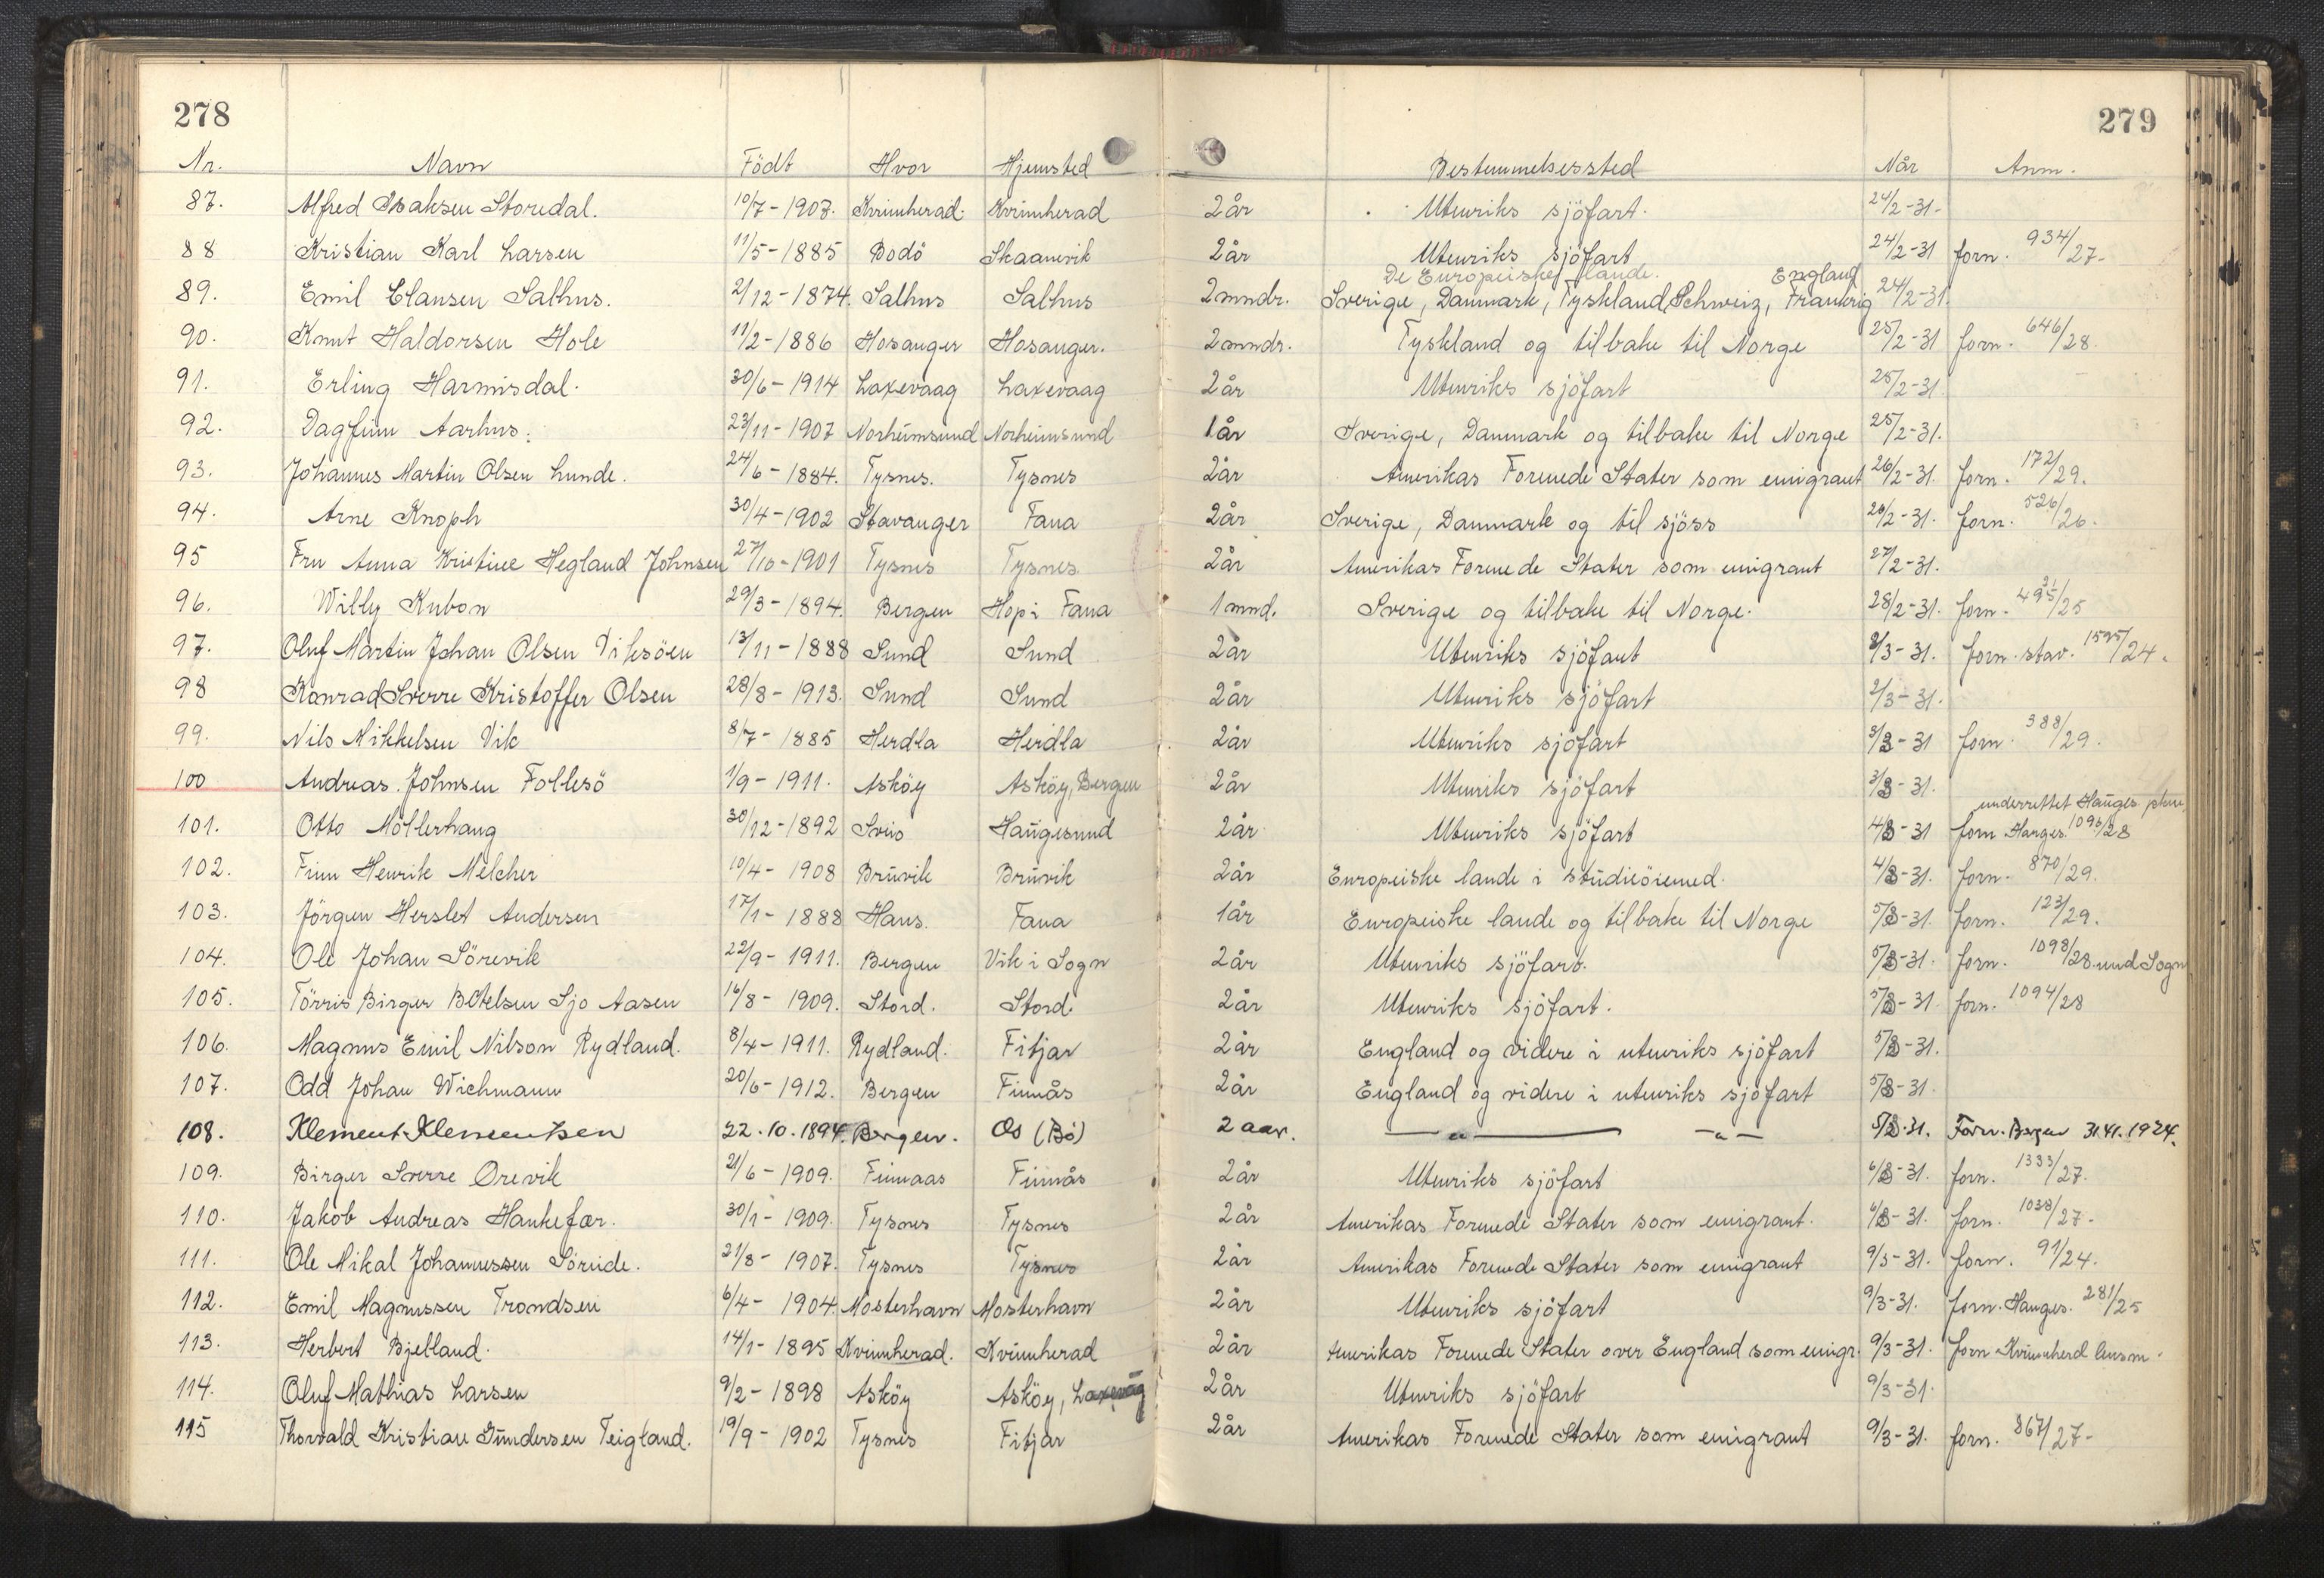 278
279
Nr. Navn Födt Hvor Hjemsted Bestemmelsessted Når Anm.
87. Alfred Isaksen Storedal. 10/7-1907. Kvinnherad. Kvinnherad 2 år Utenriks sjöfart. 24/2-31-
88 Kristian Karl Larsen 11/5-1885 Bodö Skaanevik 2 år Utenriks sjöfart 24/2-31 forn. 934/27-
De Europeiske lande. England
89. Emil Clausen Salhus. 2/12-1874. Salhus Salhus 2 mndr. Sverige, Danmark, Tyskland, Schweiz, Frankrig 24/2-31.
90. Knut Haldorsen Hole 11/2-1886 Hosanger Hosanger. 2 mndr. Tyskland og tilbake til Norge 25/2-31 forn. 646/28.
91. Erling Harmisdal. 30/6-1914 Laxevaag Laxevaag 2 år Utenriks sjöfart 25/2-31
92. Dagfinn Aarhus. 23/11-1907 Norheimsund Norheimsund 1 år Sverige, Danmark og tilbake til Norge 25/2-31.
93. Johannes Martin Olsen Lunde. 24/6-1884. Tysnes. Tysnes 2 år Amerikas Forenede Stater som emigrant 26/2-31. forn. 172/29.
94. Arne Knoph 30/4-1902 Stavanger Fana 2 år Sverige, Danmark og til sjöss 26/2-31. forn. 526/26.
95 Fru Anna Kristine Hegland Johnsen 27/10-1901 Tysnes Tysnes 2 år Amerikas Forenede Stater som emigrant 27/2-31.
96. Willy Kubon 29/3-1894. Bergen Hop i Fana 1 mnd. Sverige og tilbake til Norge. 28/2-31. forn.
97. Oluf Martin Johan Olsen Viksöen 13/11-1888 Sund Sund 2 år Utenriks sjöfart 2/3-31. forn. stav. 1595/24.
98 Konrad Sverre Kristoffer Olsen 28/8-1913. Sund Sund 2 år Utenriks sjöfart 2/3-31.
99. Nils Mikkelsen Vik 8/7-1885 Herdla Herdla 2 år Utenriks sjöfart 3/3-31 forn. 388/29.
100 Andreas Johnsen Follesö 1/9-1911. Asköy Asköy, Bergen 2 år Utenriks sjöfart 3/3-31.
underrettet Hauges.
101. Otto Möllerhaug 30/12-1892 Sveio Haugesund 2 år Utenriks sjöfart 4/3-31 forn Hauges. 1093/28
102. Finn Henrik Melcher 10/4-1908 Bruvik Bruvik 2 år Europeiske lande i studieöiemed. 4/3-31. forn. 870/29.
103. Jörgen Herslet Andersen 17/1-1888 Haus. Fana 1 år Europeiske lande og tilbake til Norge 5/3-31. forn. 123/29.
104. Ole Johan Sörevik 22/9-1911. Bergen Vik i Sogn 2 år Utenriks sjöfart. 5/3-31. forn. 1098/28. und Sogn
105. Törris Birger Botelsen Sjo Aasen 16/8-1909. Stord. Stord. 2 år Utenriks sjöfart. 5/3-31. forn. 1094/28
106. Magnus Emil Nilson Rydland. 8/4-1911. Rydland. Fitjar 2 år England og videre i utenriks sjöfart 5/3-31.
107. Odd Johan Wichmann 20/6-1912. Bergen Finnås 2 år England og videre i utenriks sjöfart 5/3-31.
108. Klement Klementsen 22.10.1894. Bergen. Os (Bö) 2 aar. —"— —"— 5/3.31. Forn. Bergen 1924.
109. Birger Sverre Orevik 21/6-1909. Finnaas Finnås 2 år Utenriks sjöfart 6/3-31. forn. 1333/27.
110. Jakob Andreas Hankefær. 30/1-1909. Tysnes Tysnes 2 år Amerikas Forenede Stater som emigrant. 6/3-31. forn. 1038/27-
111. Ole Mikal Johannessen Söreide. 21/8-1907. Tysnes Tysnes 2 år Amerikas Forenede Stater som emigrant 9/3-31. forn. 91/24.
112. Emil Magnussen Trondsen 6/4-1904. Mosterhavn Mosterhavn 2 år Utenriks sjöfart 9/3-31. forn. Hauges. 281/25
113. Herbert Bjelland. 14/1-1895 Kvinnherad. Kvinnherad 2 år Amerikas Forenede Stater over England som emigr. 9/3-31. forn Kvinnherd lensm.
114. Oluf Mathias Larsen 9/2-1898 Asköy Asköy, Laxevåg 2 år Utenriks sjöfart 9/3-31.
115 Thorvald Kristian Gundersen Teigland. 19/9-1902 Tysnes Fitjar 2 år Amerikas Forenede Stater som emigrant 9/3-31. forn. 867/27-